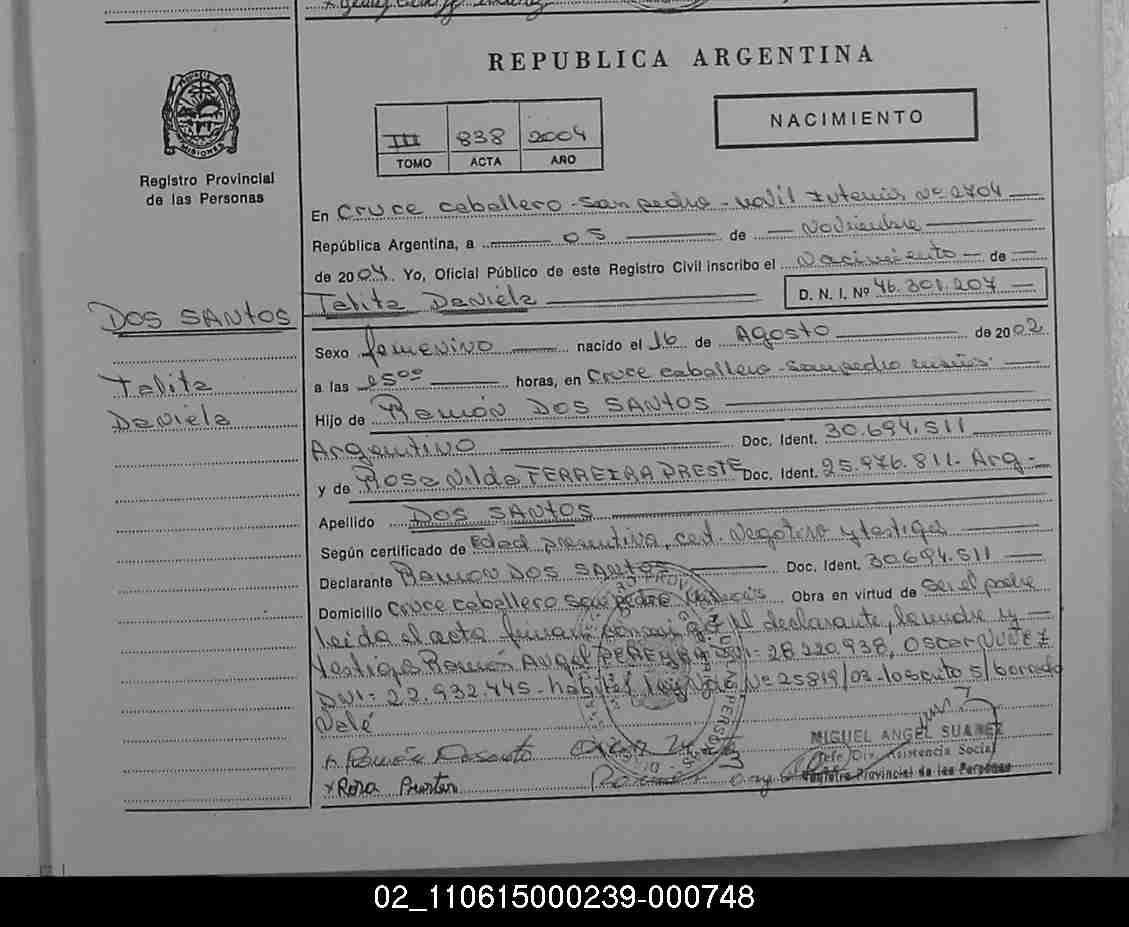 REPUBLICA ARGENTINA
PROVINCIA DE
MISIONES
Registro Provincial
de las Personas
NACIMIENTO
III 838 2004
TOMO ACTA AÑO
En Cruce Caballero - San Pedro - Movil Nº 2704
República Argentina, a 05 de Noviembre
de 2004. Yo, Oficial Público de este Registro Civil inscribo el Nacimiento de
Talita Daniela D. N. I. Nº 46.301.207
DOS SANTOS
Talita
Daniela
Sexo femenino nacido el 16 de Agosto de 2002
a las 1500 horas, en Cruce Caballero - San Pedro
Hijo de Ramón DOS SANTOS
Argentino Doc. Ident. 30.694.511
y de Rosa Nilda FERREIRA PRESTE Doc. Ident. 25.976.811. Arg.
Apellido DOS SANTOS
Según certificado de Edad presuntiva, cert. Negativo y testigos
Declarante Ramon DOS SANTOS Doc. Ident. 30.694.511
Domicilio Cruce Caballero San Pedro Misiones Obra en virtud de ser el padre
Leida el acta firman conmigo el declarante, la madre y
testigos Ramón Angel PEREYRA DNI: 28.220.938, Oscar NUÑEZ
DNI: 22.932.445 - Nº 25819/03 - lo escrito s/ borrado
Vale
MIGUEL ANGEL SUAREZ
Jefe Div. Asistencia Social
Registro Provincial de las Personas
Rosa
02_110615000239-000748